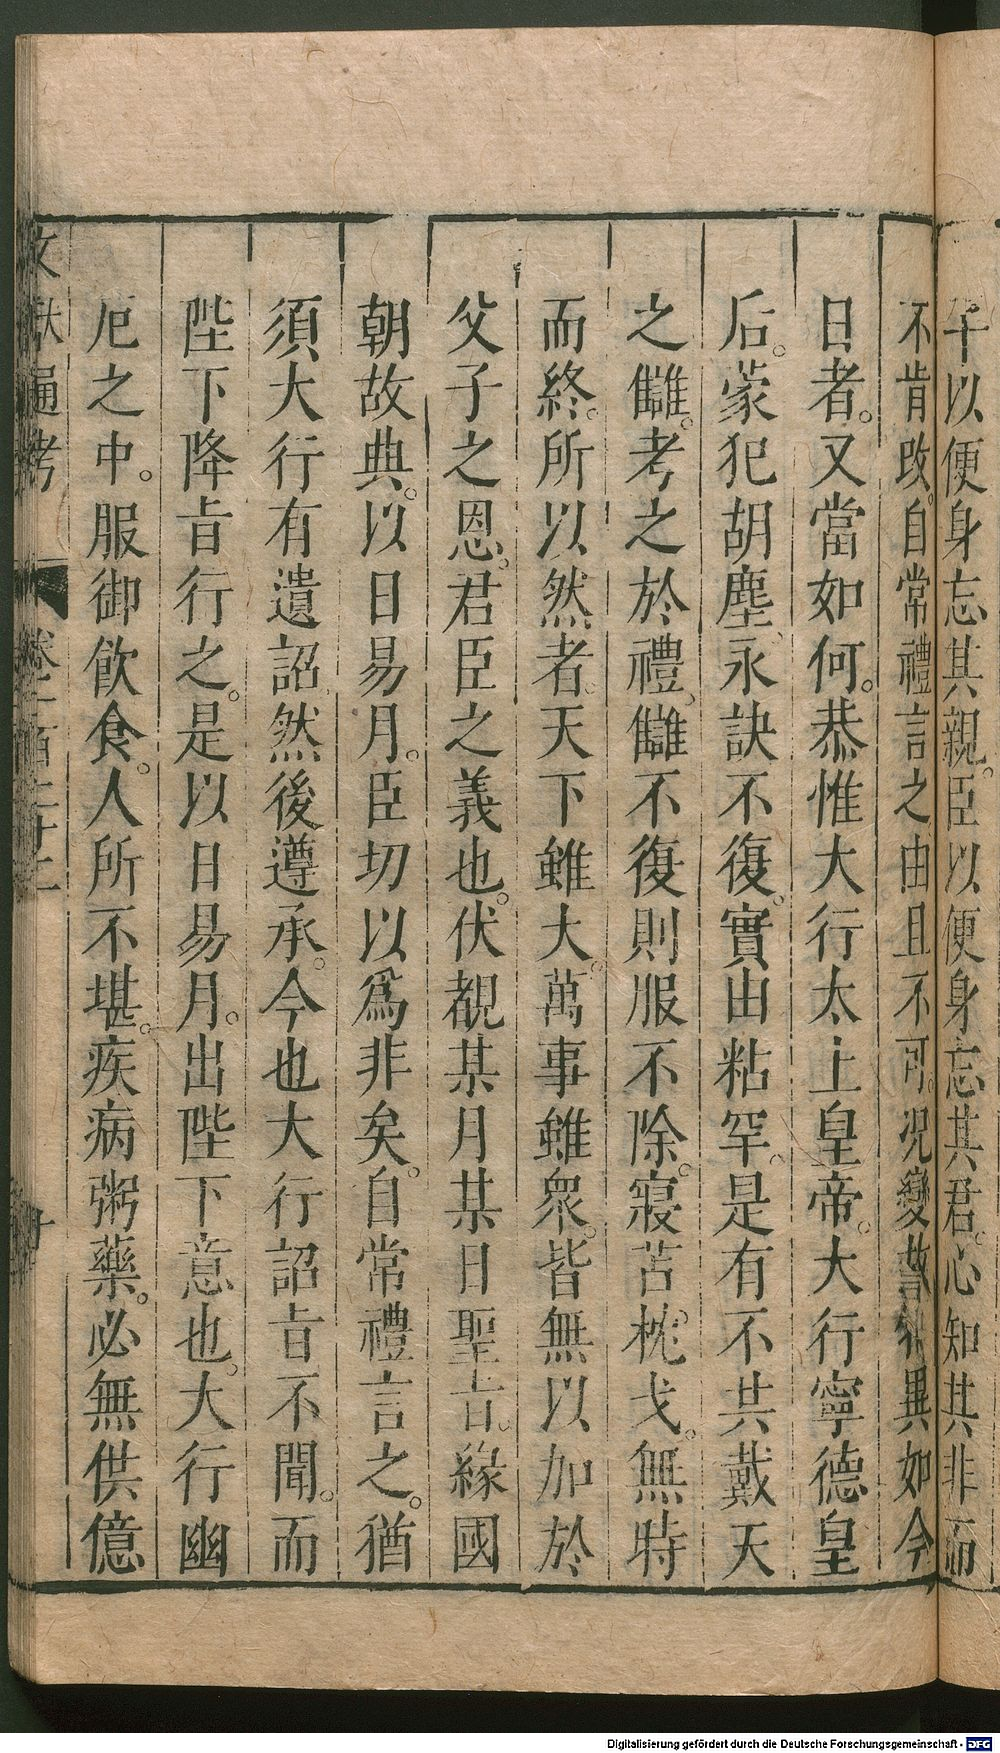 干以便身忘其親。臣以便身忘其君。心知其非而
不肯改。自常禮言之由且不可。况變故特異如今
日者。又當如何。恭惟大行太上皇帝。大行寧德皇
后。蒙犯胡塵、永訣不復。實由粘罕。是有不共戴天
之讎。考之於禮。讎不復則服不除。寢苫枕戈。無時
而終。所以然者。天下雖大。萬事雖衆。皆無以加於
父子之恩。君臣之義也。伏覩某月某日聖旨。緣國
朝故典。以日易月。臣切以爲非矣。自常禮言之。猶
須大行有遺詔。然後遵承。今也大行詔旨不聞。而
陛下降旨行之。是以日易月。出陛下意也。大行幽
厄之中。服御飲食。人所不堪。疾病粥藥。必無供億
文獻通考 卷之一百二十二 十
Digitalisierung gefördert durch die Deutsche Forschungsgemeinschaft - DFG